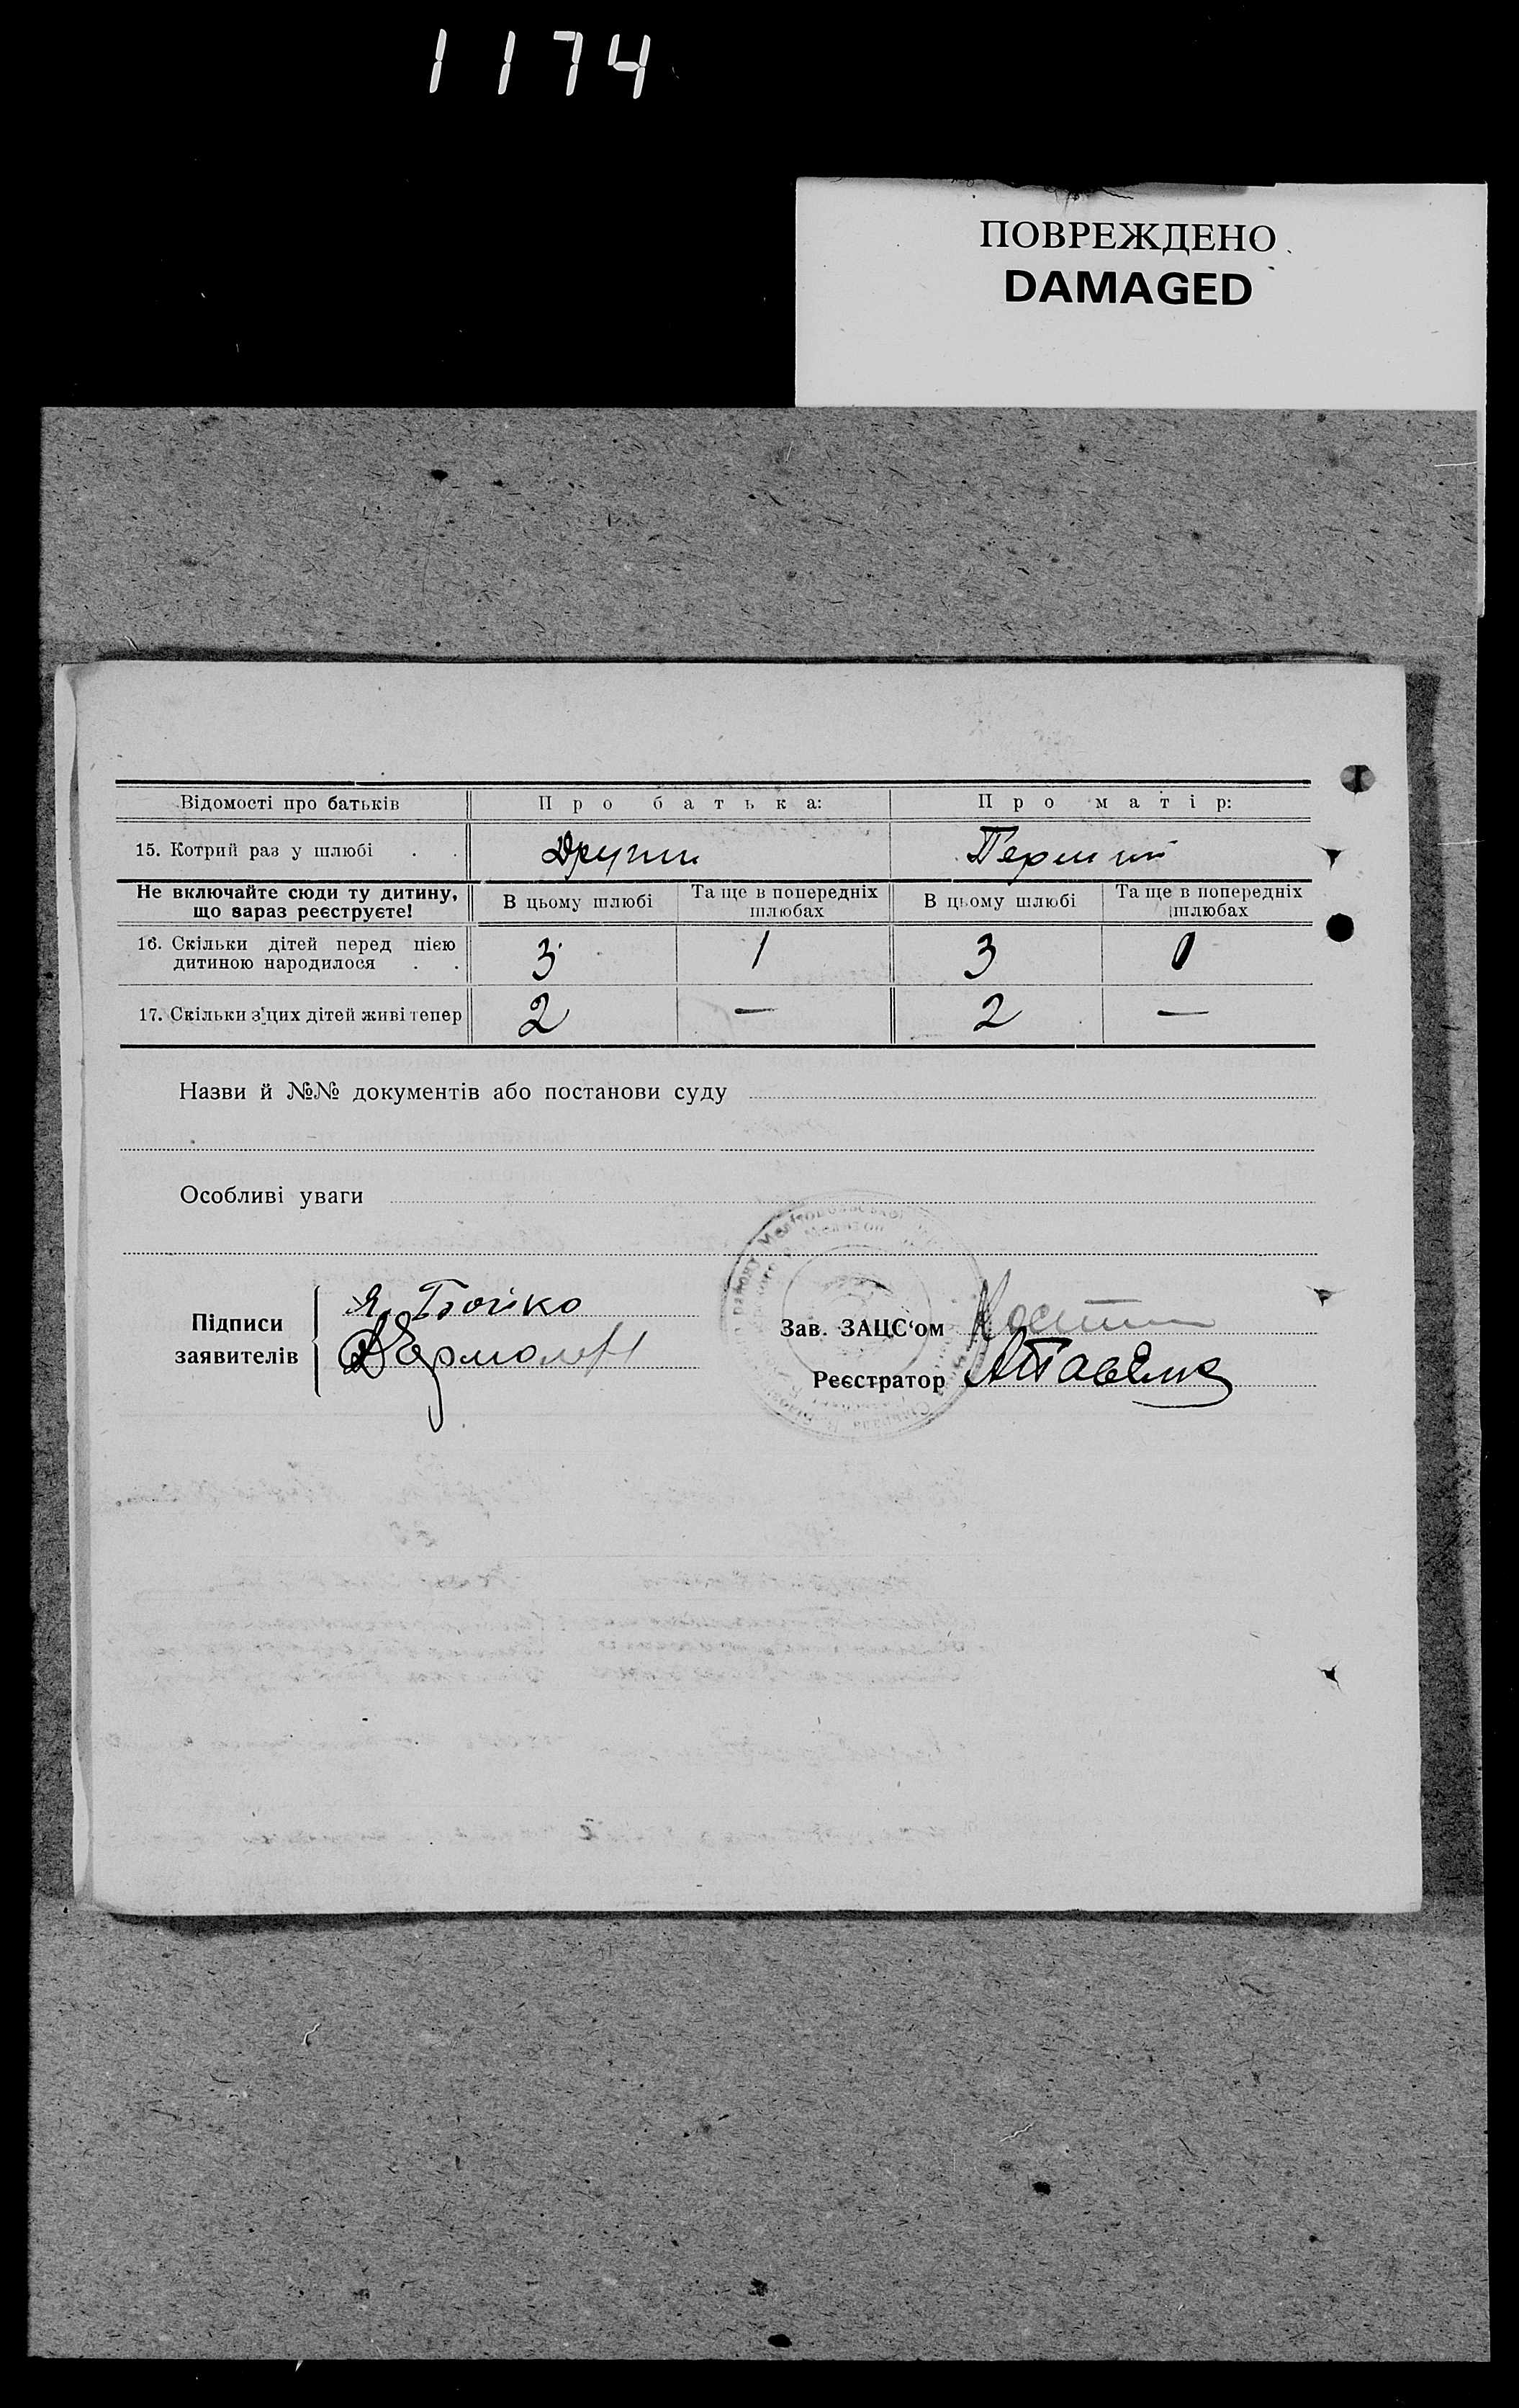 1174
ПОВРЕЖДЕНО
DAMAGED
Відомості про батьків Про батька: Про матір:
15. Котрий раз у шлюбі . . Другий Перший
Не включайте сюди ту дитину, що зараз реєструєте! В цьому шлюбі Та ще в попередніх шлюбах В цьому шлюбі Та ще в попередніх шлюбах
16. Скільки дітей перед цією дитиною народилося . . 3 1 3 0
17. Скільки з цих дітей живі тепер 2 — 2 —
Назви й №№ документів або постанови суду
Особливі уваги
Підписи заявителів
Я. Бойко
Зав. ЗАЦС‘ом
Реєстратор